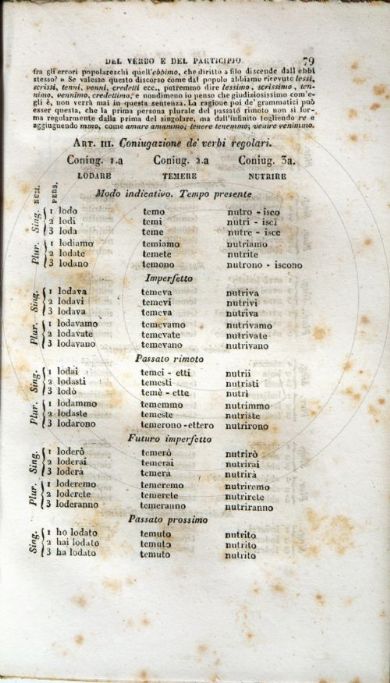 DEL VERBO E DEL PARTICIPIO 79
fra gli errori popolareschi quell'ebbimo, che diritto a filo discende dall'ebbi
stesso? » Se valesse questo discorso come dal popolo abbiamo ricevuto lessi,
scrissi, tenni, venni, credetti ecc., potremmo dire lessimo, scrissimo, ten-
nimo, vennimo, credettimo, e nondimeno io penso che giudiziosissimo com'e-
gli è, non verrà mai in questa sentenza. La ragione poi de' grammatici può
esser questa, che la prima persona plurale del passato rimoto non si for-
ma regolarmente dalla prima del singolare, ma dall'infinito togliendo re e
aggiungendo mmo, come amare amammo; tenere tenemmo; venire venimmo.
ART. III. Coniugazione de' verbi regolari.
Coniug. 1.a Coniug. 2.a Coniug. 3a.
LODARE TEMERE NUTRIRE
NUM. PERS.
Modo indicativo. Tempo presente
Sing. 1 lodo temo nutro - isco
2 lodi temi nutri - isci
3 loda teme nutre - isce
Plur. 1 lodiamo temiamo nutriamo
2 lodate temete nutrite
3 lodano temono nutrono - iscono
Imperfetto
Sing. 1 lodava temeva nutriva
2 lodavi temevi nutrivi
3 lodava temeva nutriva
Plur. 1 lodavamo temevamo nutrivamo
2 lodavate temevate nutrivate
3 lodavano temevano nutrivano
Passato rimoto
Sing. 1 lodai temei - etti nutrii
2 lodasti temesti nutristi
3 lodò temè - ette nutrì
Plur. 1 lodammo tememmo nutrimmo
2 lodaste temeste nutriste
3 lodarono temerono - ettero nutrirono
Futuro imperfetto
Sing. 1 loderò temerò nutrirò
2 loderai temerai nutrirai
3 loderà temerà nutrirà
Plur. 1 loderemo temeremo nutriremo
2 loderete temerete nutrirete
3 loderanno temeranno nutriranno
Passato prossimo
Sing. 1 ho lodato temuto nutrito
2 hai lodato temuto nutrito
3 ha lodato temuto nutrito